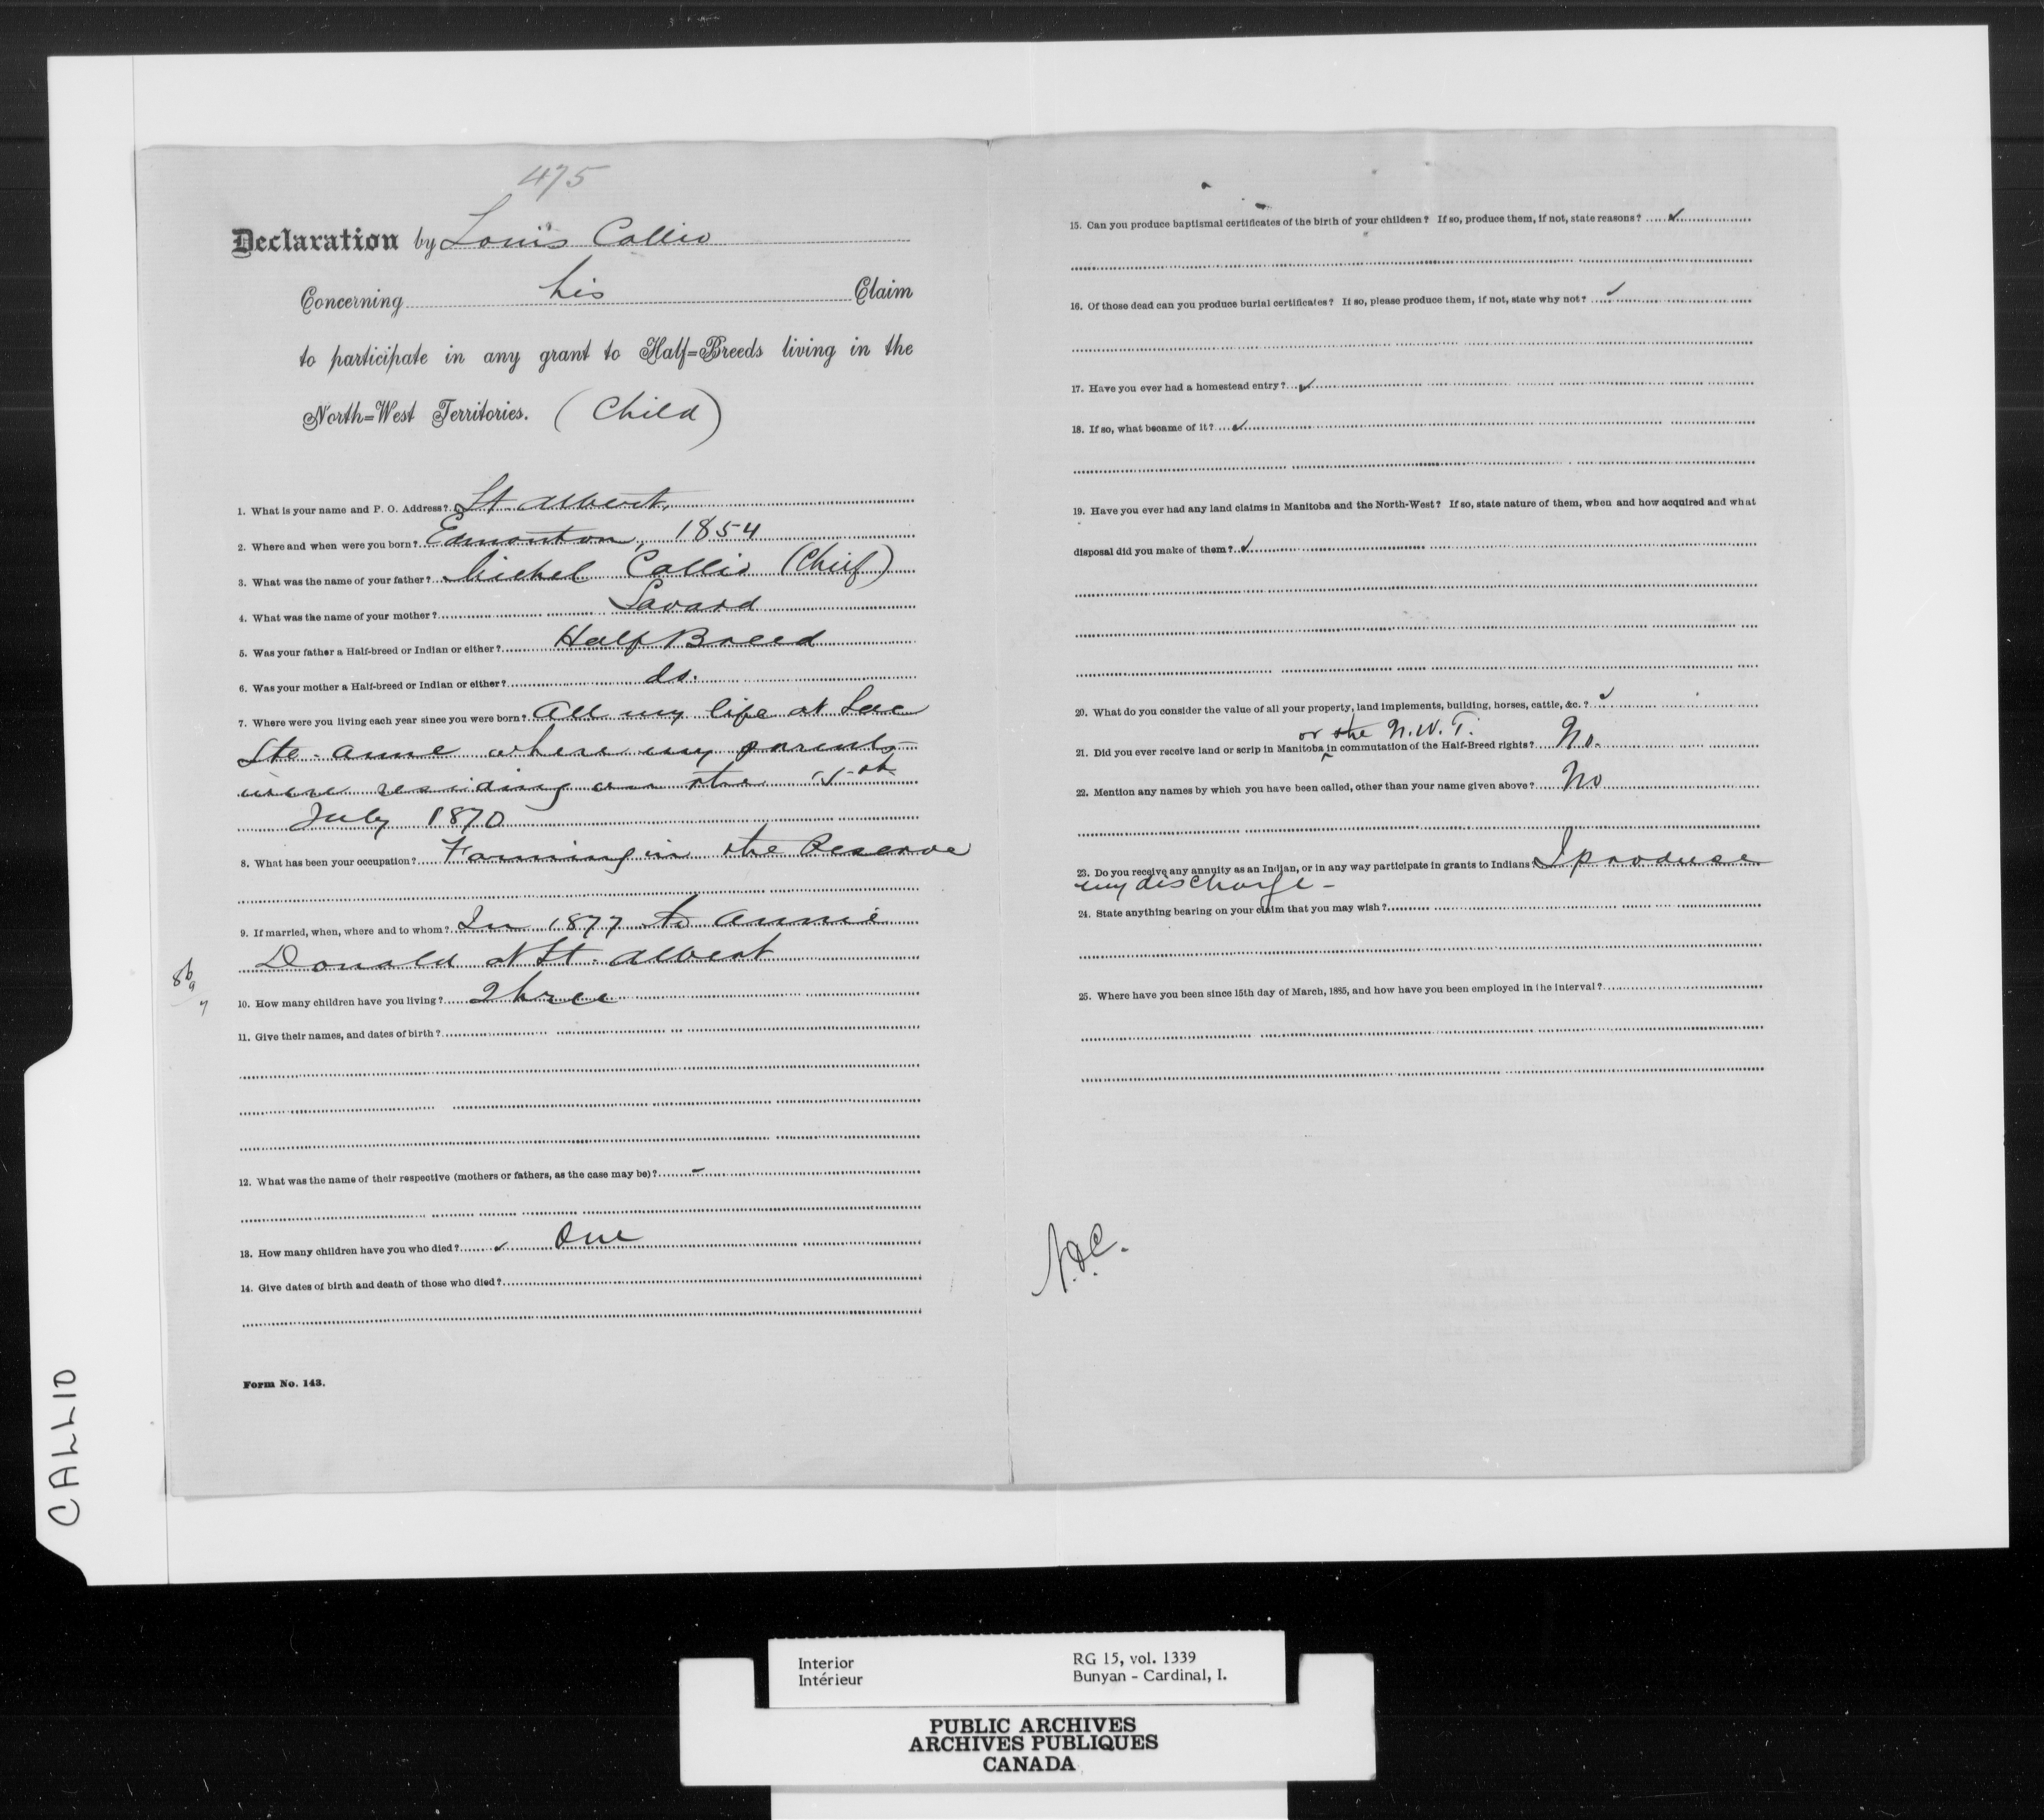 475
Declaration by Louis Callio
Concerning his Claim
to participate in any grant to Half=Breeds living in the
North=West Territories. (Child)
1. What is your name and P. O. Address? St. Albert.
2. Where and when were you born? Edmonton, 1854
3. What was the name of your father? Michel Callio (Chief)
4. What was the name of your mother? Savard
5. Was your father a Half-breed or Indian or either? Half Breed
6. Was your mother a Half-breed or Indian or either? do.
7. Where were you living each year since you were born? All my life at Lac
Ste. Anne where my parents
were residing on the 15th
July 1870
8. What has been your occupation? Farming in the Reserve
9. If married, when, where and to whom? In 1877 to Annie
Donald at St. Albert
10. How many children have you living? Three
11. Give their names, and dates of birth?
12. What was the name of their respective (mothers or fathers, as the case may be)?
13. How many children have you who died? One
14. Give dates of birth and death of those who died?
Form No. 143.
15. Can you produce baptismal certificates of the birth of your childeen? If so, produce them, if not, state reasons?
16. Of those dead can you produce burial certificates? If so, please produce them, if not, state why not?
17. Have you ever had a homestead entry?
18. If so, what became of it?
19. Have you ever had any land claims in Manitoba and the North-West? If so, state nature of them, when and how acquired and what
disposal did you make of them?
20. What do you consider the value of all your property, land implements, building, horses, cattle, &c.?
or the N.W.T.
21. Did you ever receive land or scrip in Manitoba in commutation of the Half-Breed rights? No.
22. Mention any names by which you have been called, other than your name given above? No
23. Do you receive any annuity as an Indian, or in any way participate in grants to Indians? I produce
my discharge -
24. State anything bearing on your claim that you may wish?
25. Where have you been since 15th day of March, 1885, and how have you been employed in the interval?
CALLIO
Interior
Intérieur
RG 15, vol. 1339
Bunyan - Cardinal, I.
PUBLIC ARCHIVES
ARCHIVES PUBLIQUES
CANADA